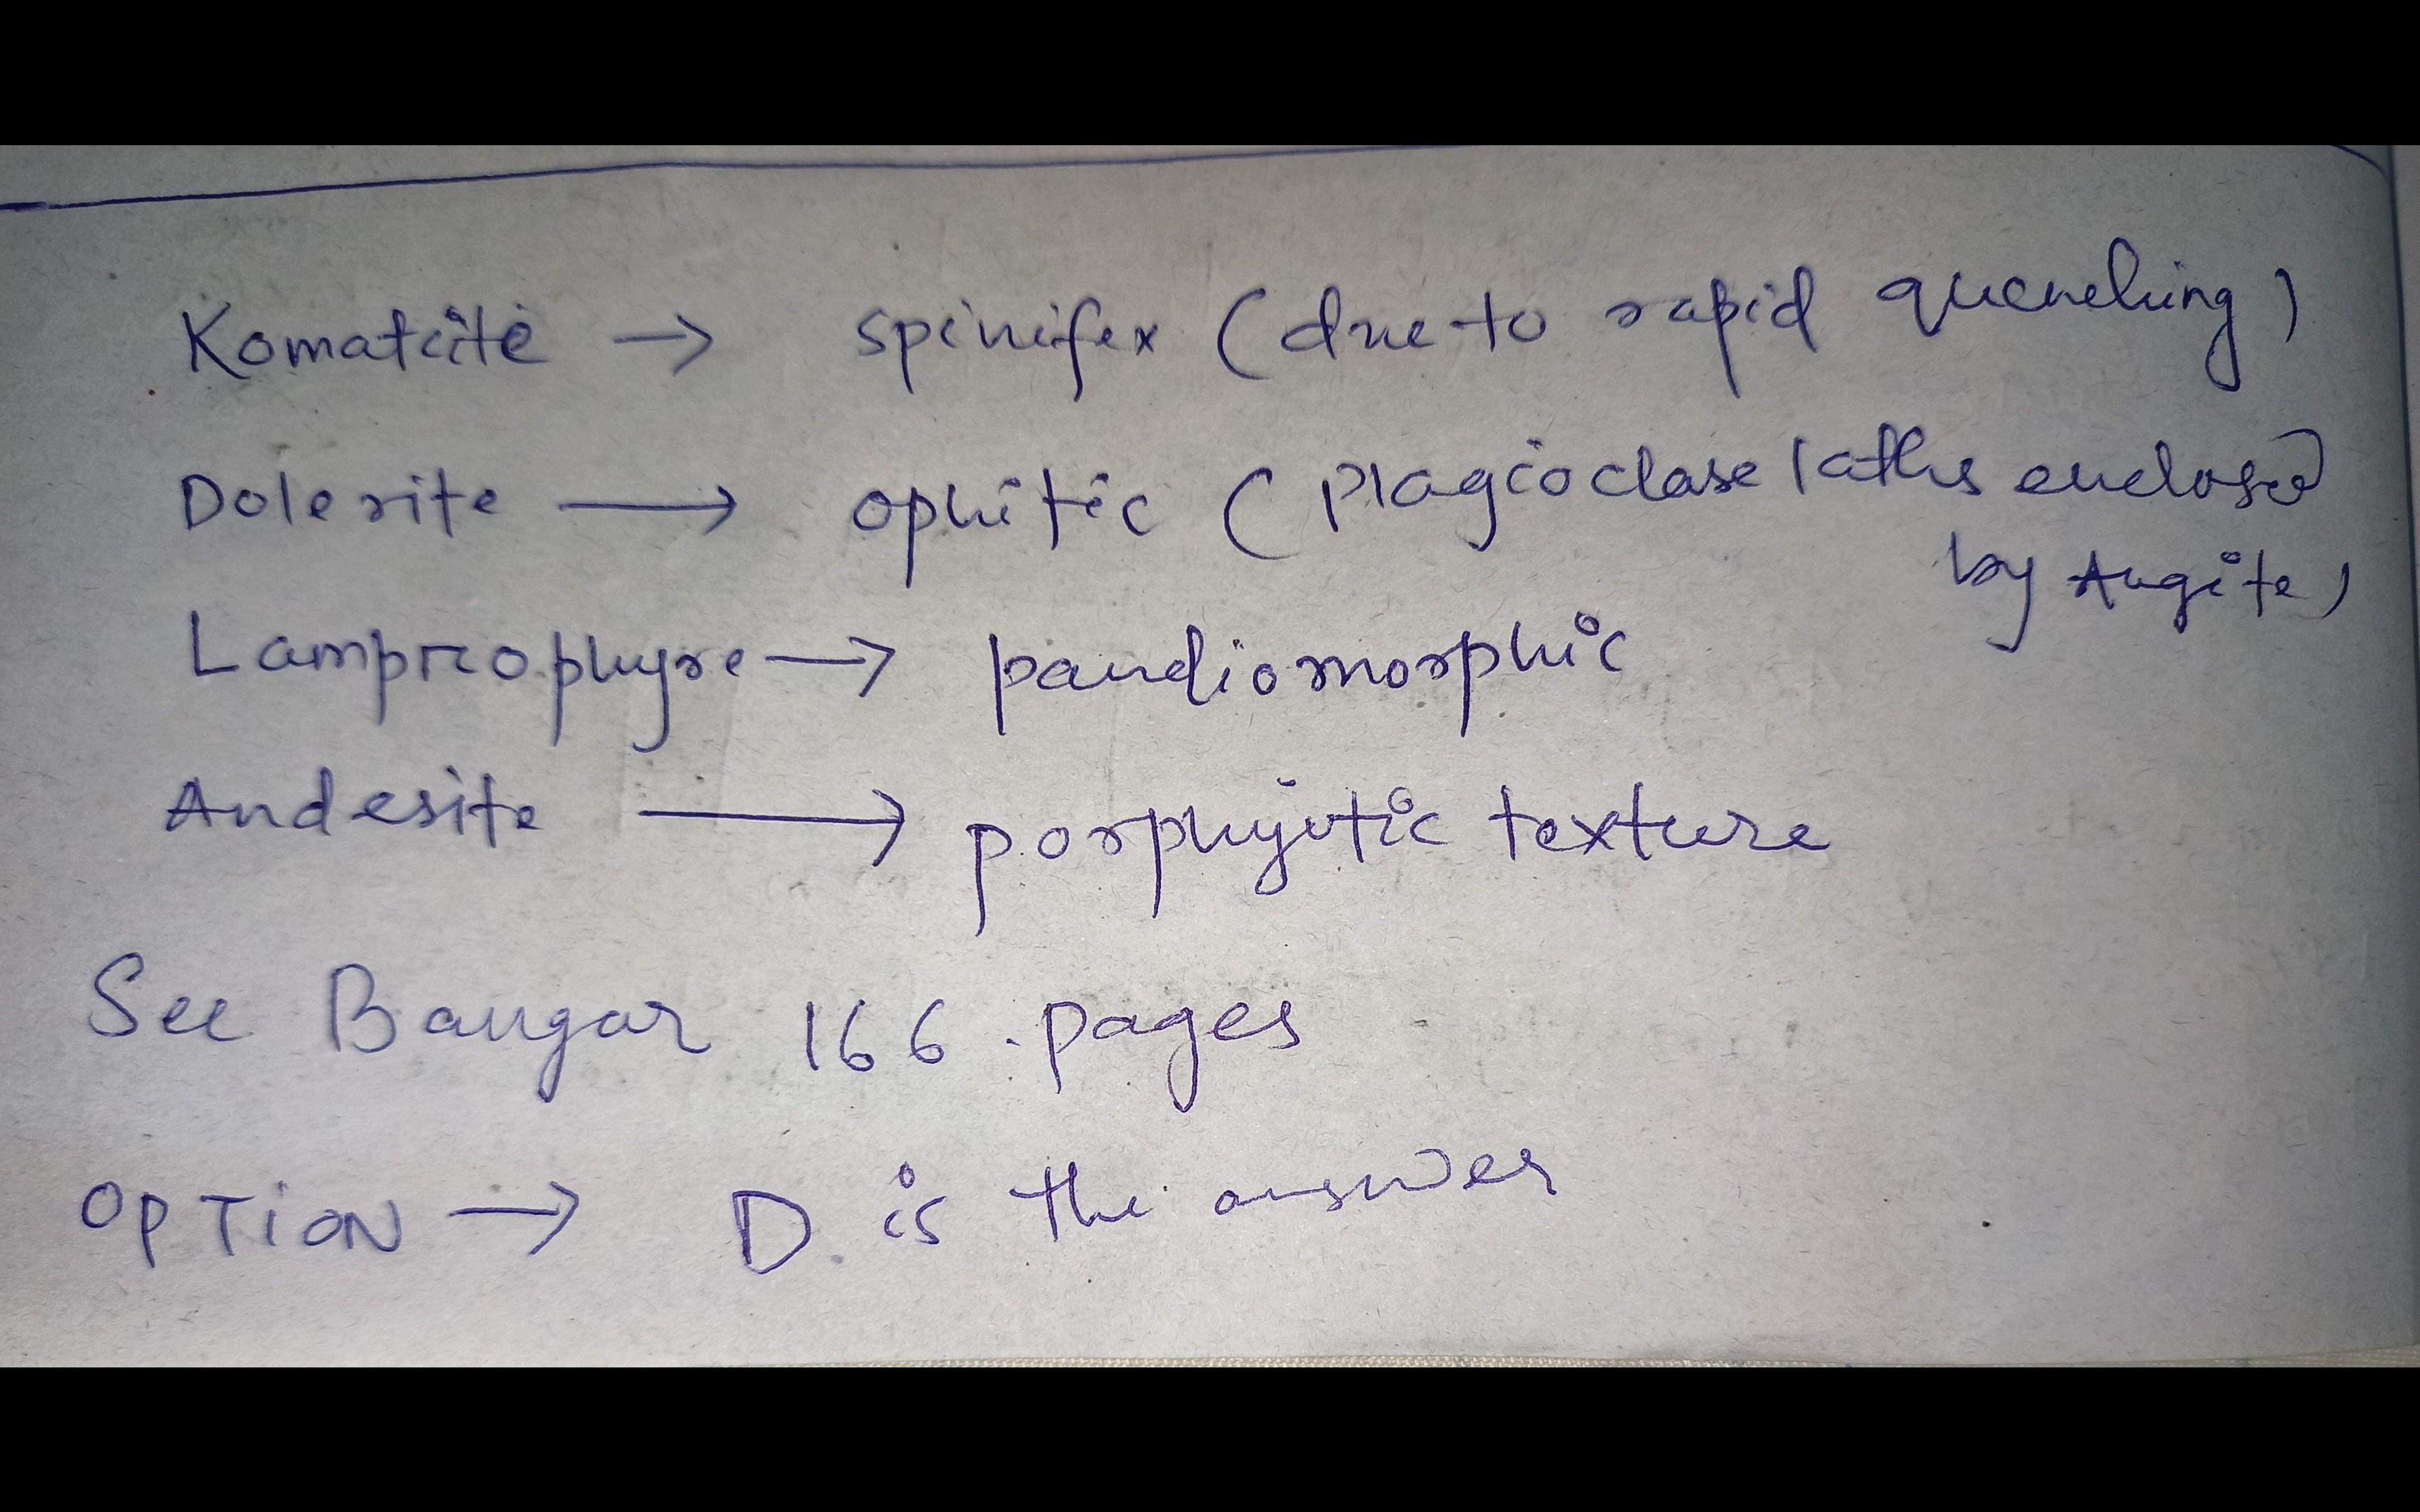 Komatiite → spinifex (due to rapid quenching)
Dolerite → ophitic (Plagioclase laths enclosed
by Augite)
Lamprophyre → pandiomorphic
Andesite → porphyritic texture
See Bangar 166 pages
OPTION → D is the answer